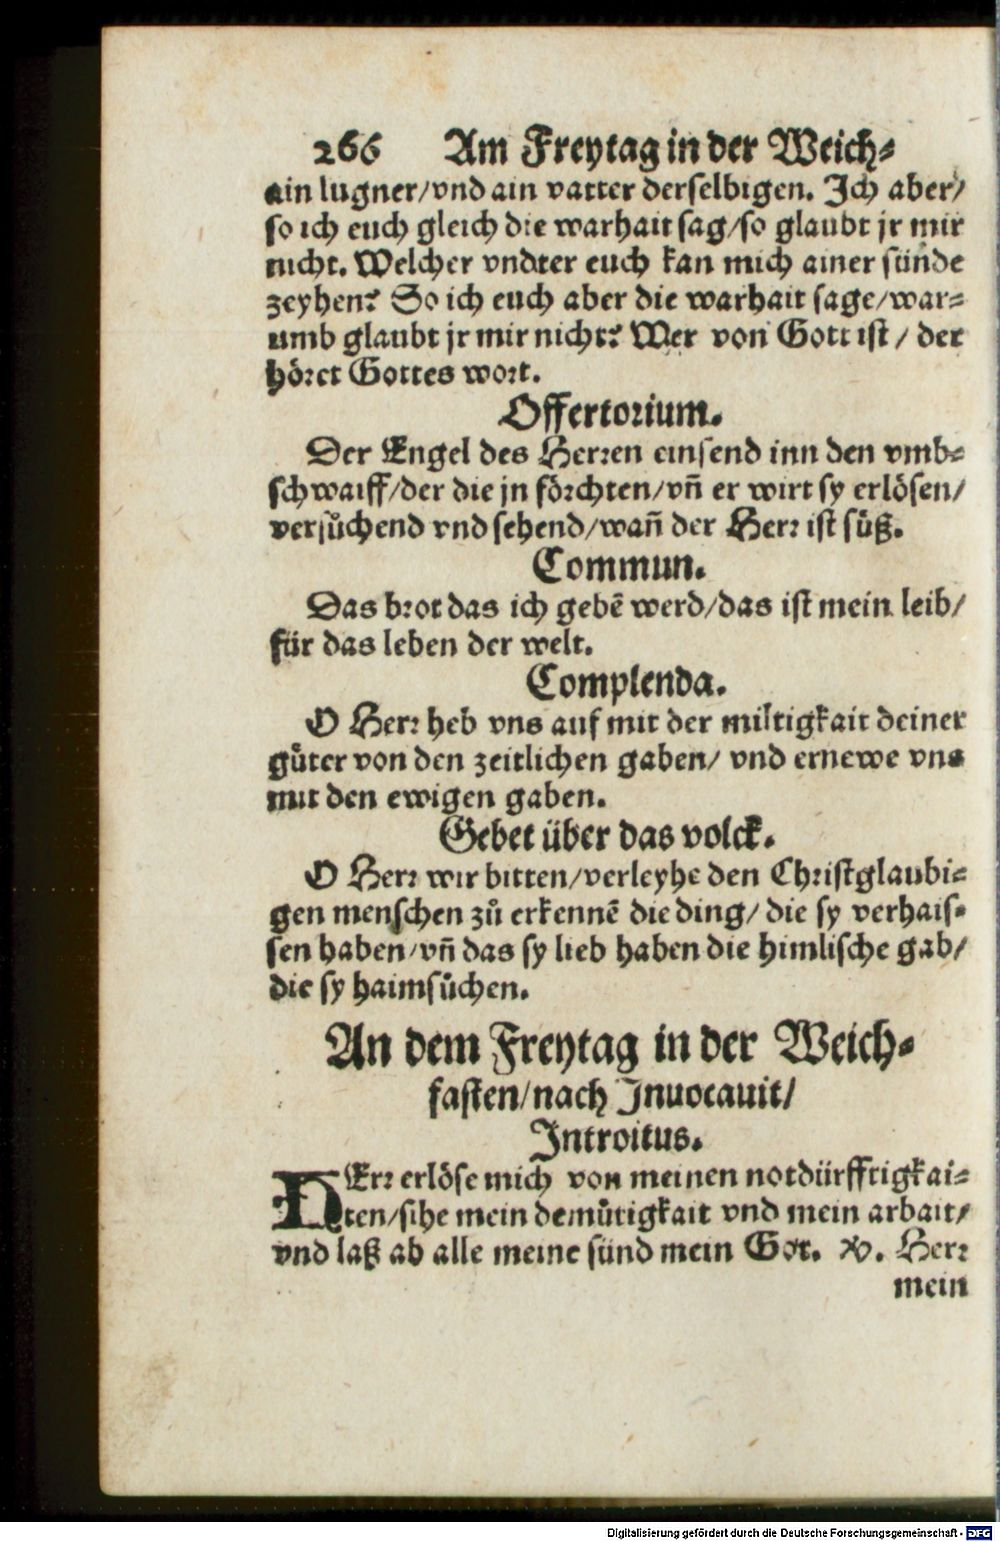 266 Am Freytag in der Weich⸗
ain lugner/vnd ain vatter derselbigen. Ich aber/
so ich euch gleich die warhait sag/so glaubt jr mir
nicht. Welcher vndter euch kan mich ainer sünde
zeyhen? So ich euch aber die warhait sage/war⸗
umb glaubt jr mir nicht? Wer von Gott ist / der
höret Gottes wort.
Offertorium.
Der Engel des Herren einsend inn den vmb⸗
schwaiff/der die jn förchten/vn̄ er wirt sy erlösen/
versůchend vnd sehend/wan̄ der Herr ist süß.
Commun.
Das brot das ich gebē werd/das ist mein leib/
für das leben der welt.
Complenda.
O Herr heb vns auf mit der miltigkait deiner
gůter von den zeitlichen gaben/ vnd ernewe vns
mit den ewigen gaben.
Gebet über das volck.
O Herr wir bitten/verleyhe den Christglaubi⸗
gen menschen zů erkennē die ding/ die sy verhais⸗
sen haben/vn̄ das sy lieb haben die himlische gab/
die sy haimsůchen.
An dem Freytag in der Weich⸗
fasten/nach Inuocauit/
Introitus.
HErr erlöse mich von meinen notdürfftigkai⸗
ten/sihe mein demůtigkait vnd mein arbait/
vnd laß ab alle meine sünd mein Got. V. Herr
mein
Digitalisierung gefördert durch die Deutsche Forschungsgemeinschaft - DFG